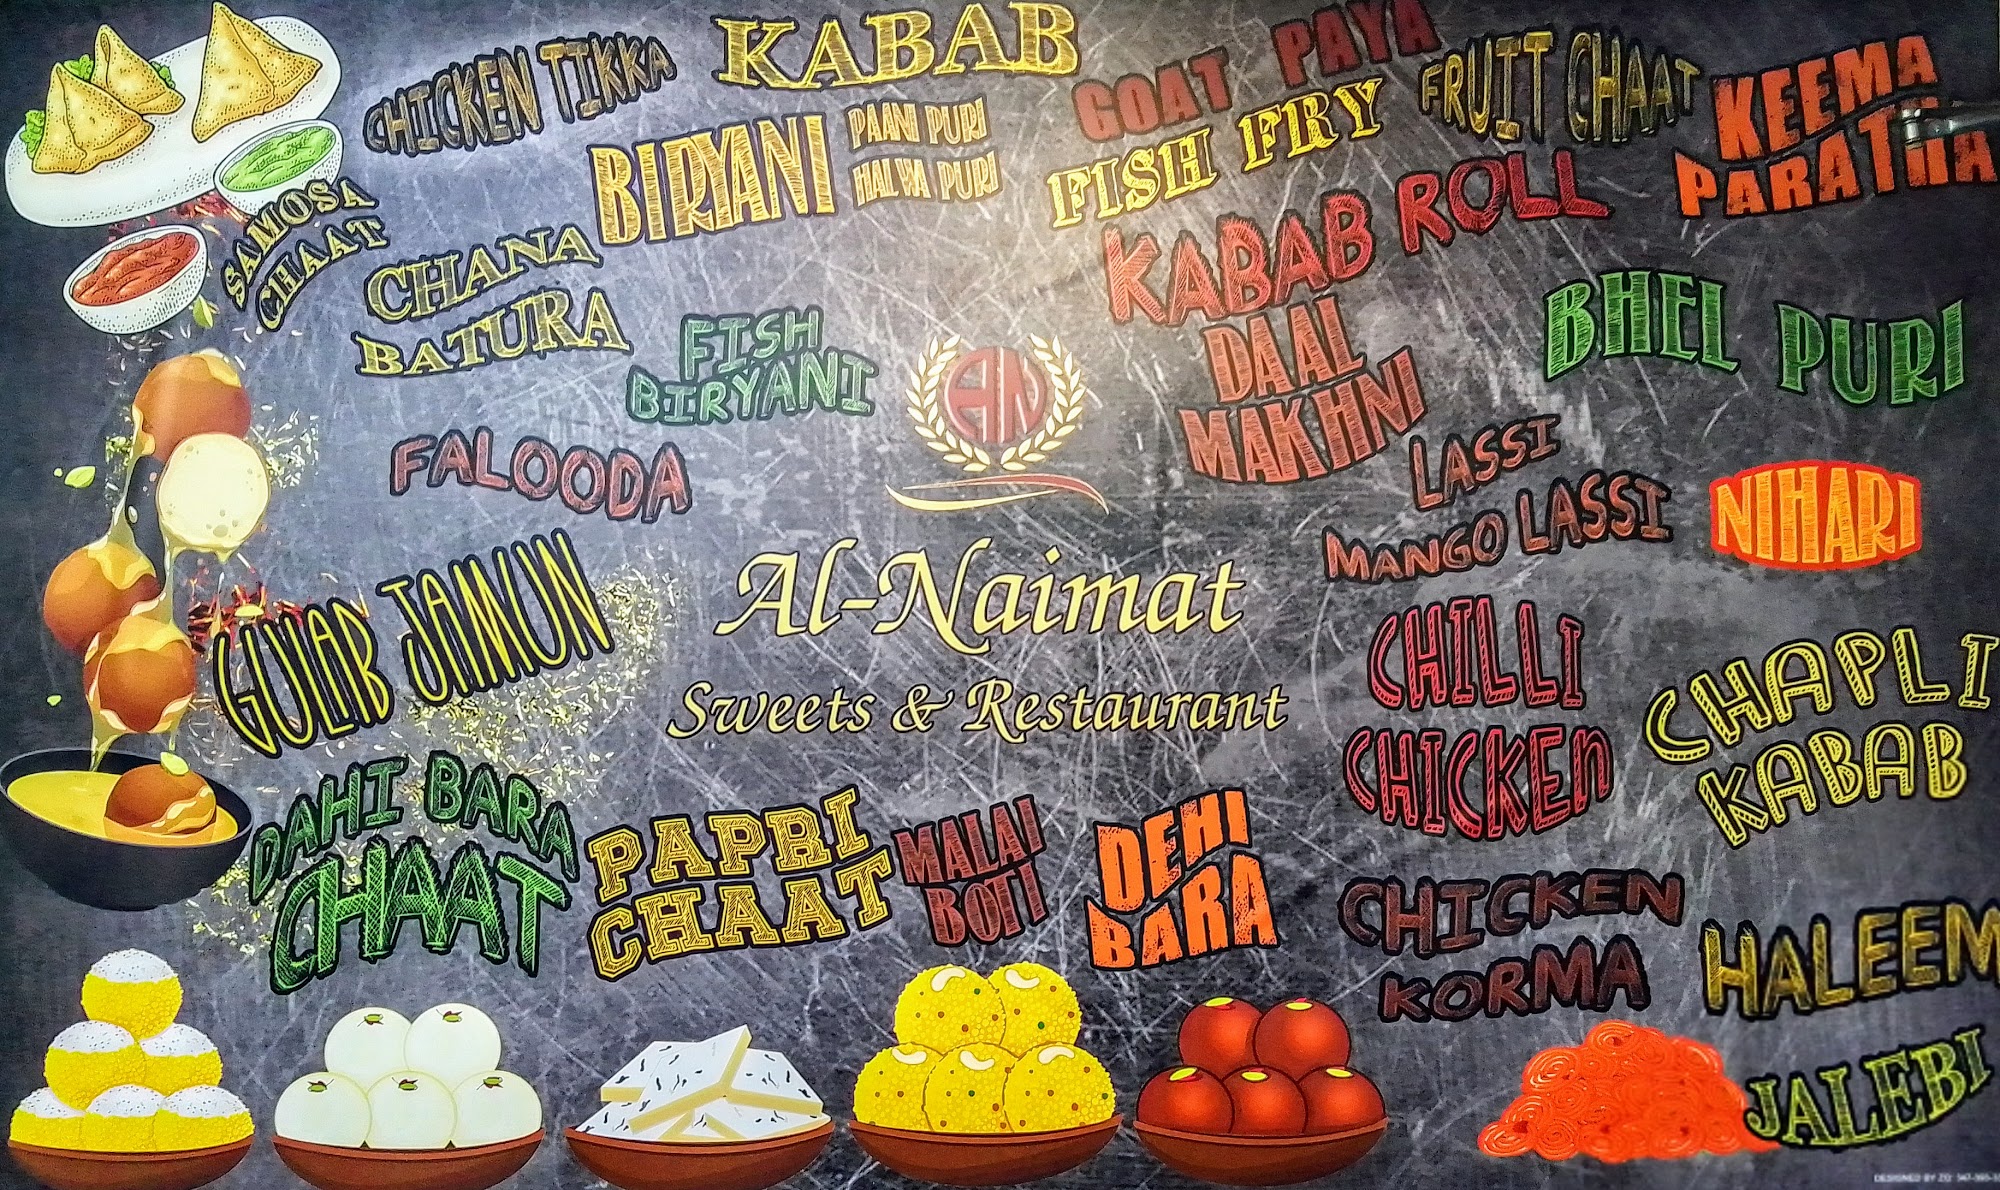 CHICKEN TIKKA
KABAB
GOAT PAYA
FRUIT CHAAT
KEEMA
PARATHA
BIRYANI
PAANI PURI
HALWA PURI
FISH FRY
SAMOSA
CHAAT
CHANA
BATURA
KABAB ROLL
FISH
BIRYANI
AN
DAAL
MAKHNI
BHEL PURI
FALOODA
LASSI
MANGO LASSI
NIHARI
GULAB JAMUN
Al-Naimat
Sweets & Restaurant
CHILLI
CHICKEN
CHAPLI
KABAB
DAHI BARA
CHAAT
PAPRI
CHAAT
MALAI
BOTI
DEHI
BARA
CHICKEN
KORMA
HALEEM
JALEBI
DESIGNED BY